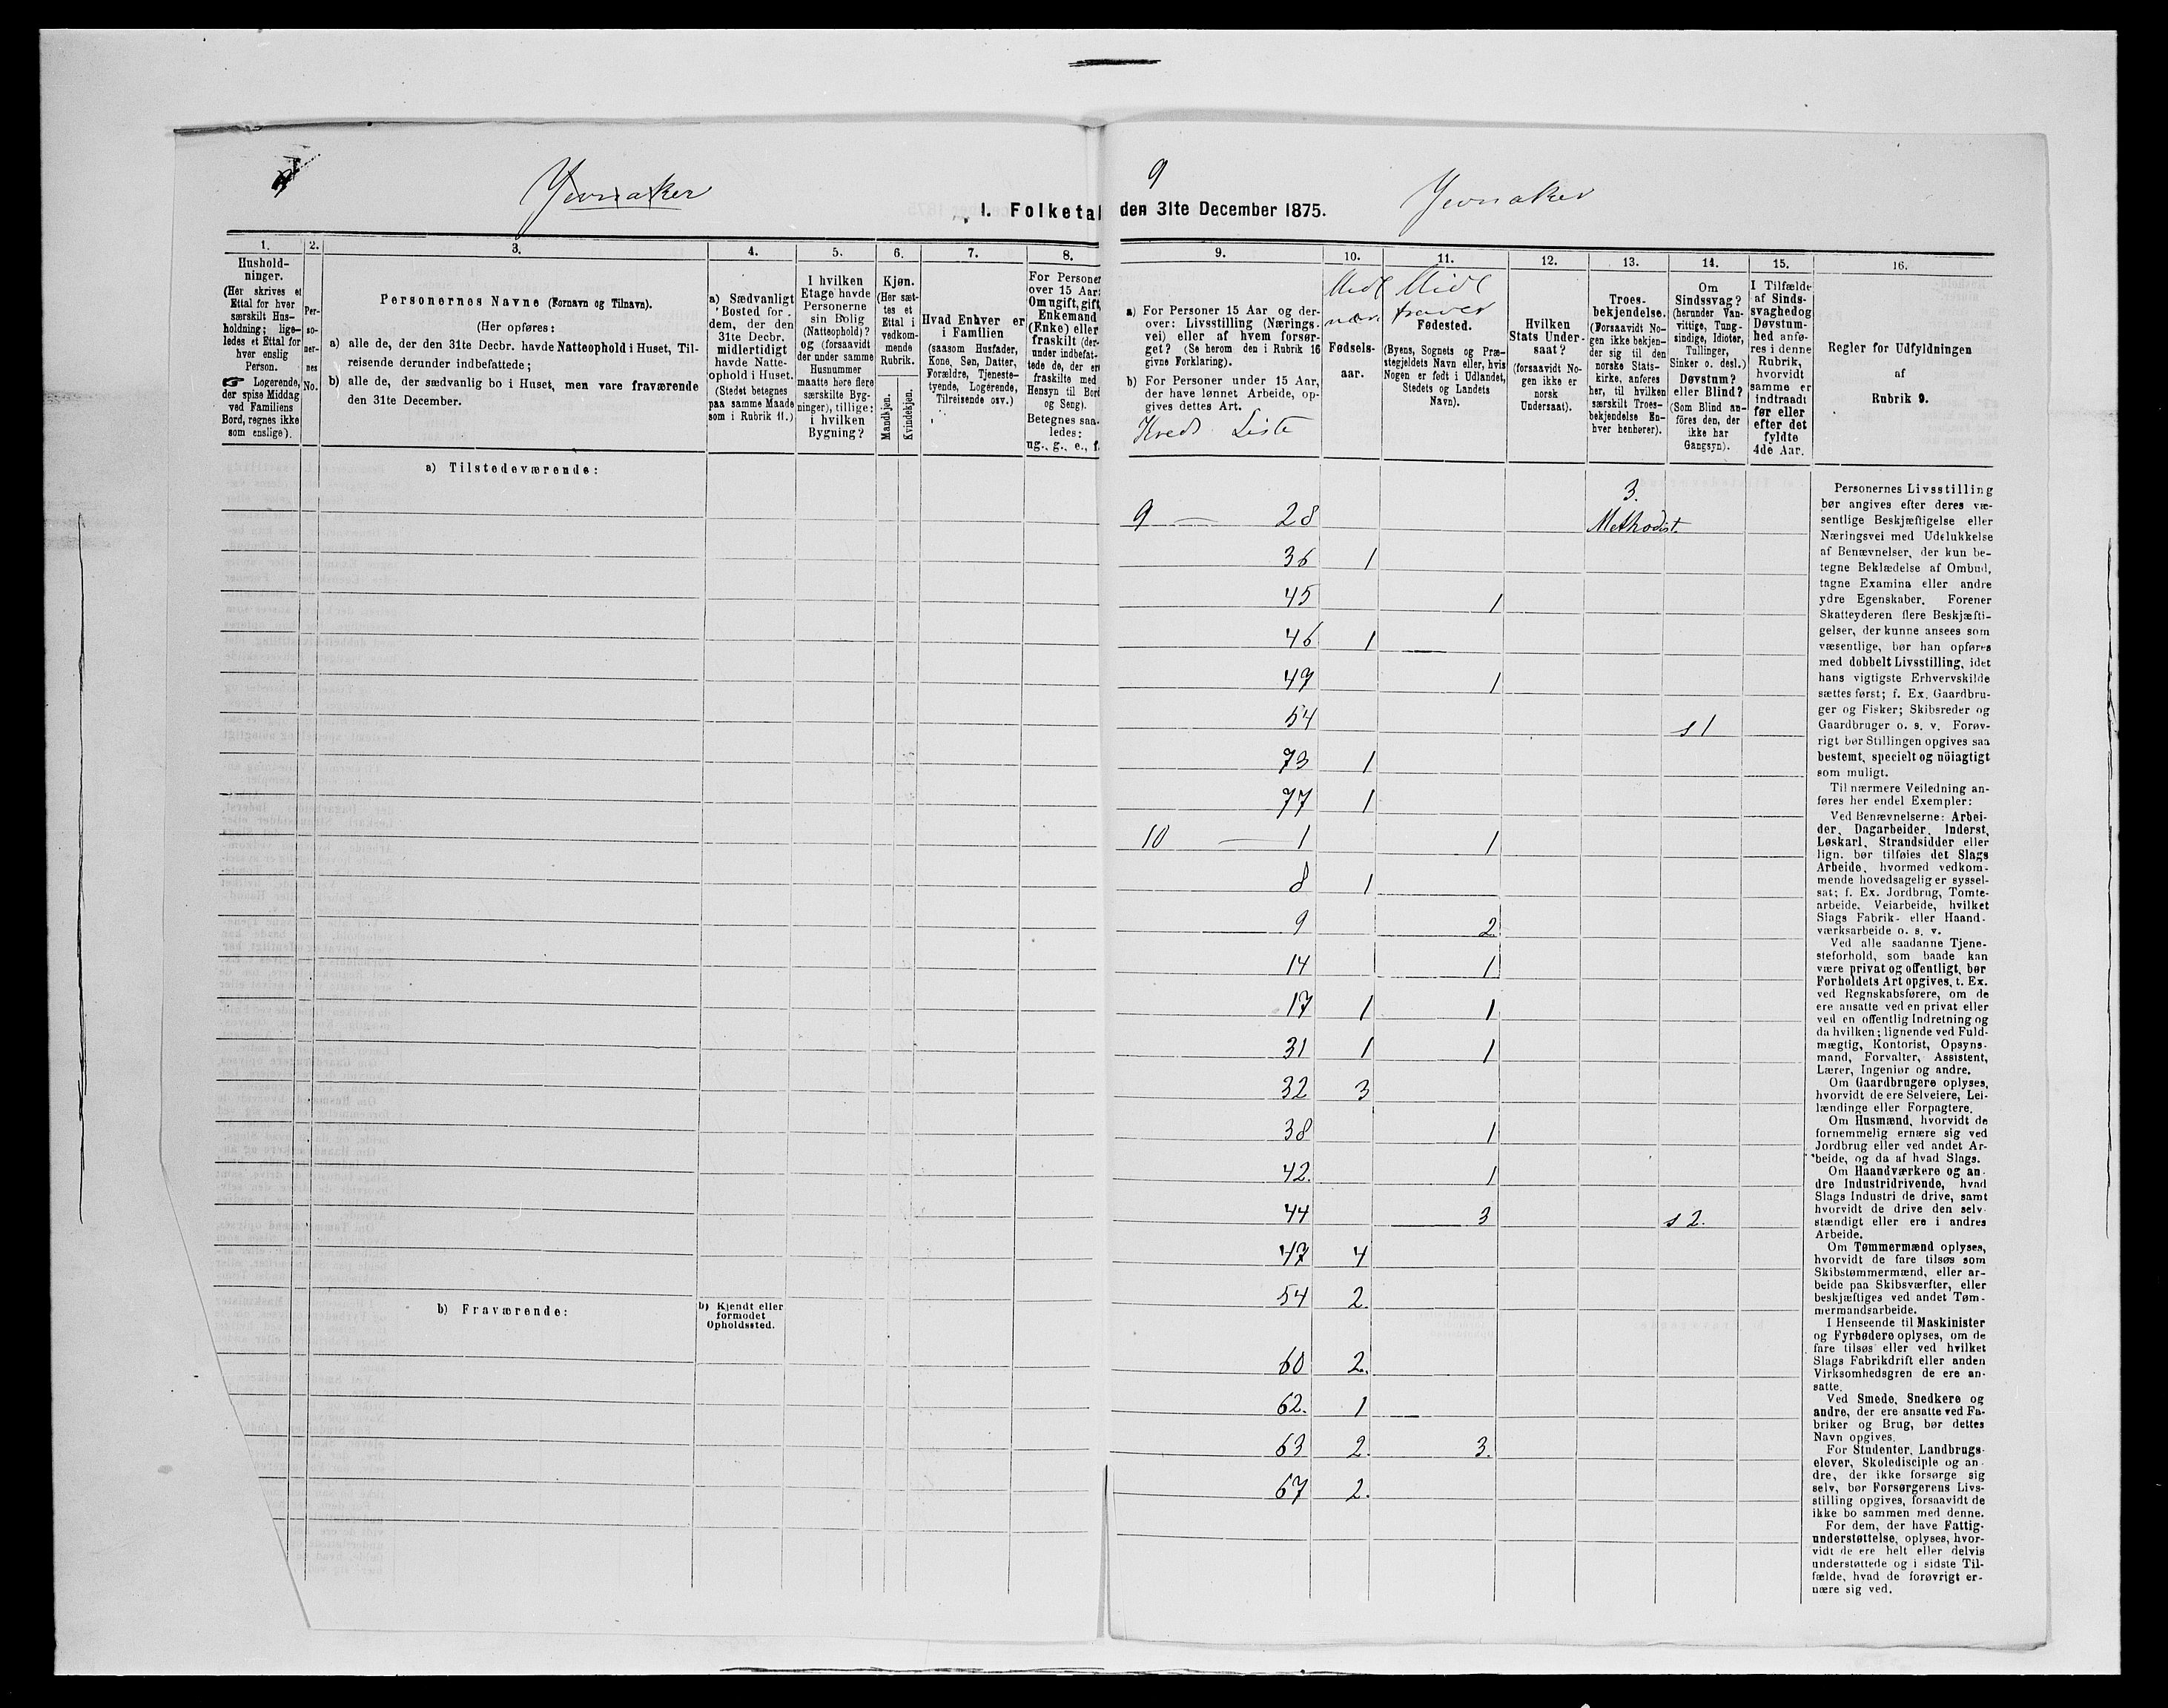 Jevnaker
9
Jevnaker
1. Folketal den 31te December 1875.
1.
2.
3.
4.
5.
6.
7.
8.
9.
10.
11.
12.
13.
14.
15.
16.
Hushold-
ninger.
(Her skrives et
Ettal for hver
særskilt Hus-
holdning; lige-
ledes et Ettal for
hver enslig
Person.
☞ Logerende,
der spise Middag
ved Familiens
Bord, regnes ikke
som enslige).
Per-
so-
ner-
nes
No.
Personernes Navne (Fornavn og Tilnavn).
(Her opføres:
a) alle de, der den 31te Decbr. havde Natteophold i Huset, Til-
reisende derunder indbefattede;
b) alle de, der sædvanlig bo i Huset, men vare fraværende
den 31te December.
a) Sædvanligt
Bosted for
dem, der den
31te Decbr.
midlertidigt
havde Natte-
ophold i Huset.
(Stedet betegnes
paa samme Maade
som i Rubrik 11.)
I hvilken
Etage havde
Personerne
sin Bolig
(Natteophold)?
og (forsaavidt
der under samme
Husnummer
maatte høre flere
særskilte Byg-
ninger), tillige:
i hvilken
Bygning?
Kjøn.
(Her sæt-
tes et
Ettal i
vedkom-
mende
Rubrik.
Mandkjøn.
Kvindekjøn.
Hvad Enhver er
i Familien
(saasom Husfader,
Kone, Søn, Datter,
Forældre, Tjeneste-
tyende, Logerende,
Tilreisende osv.)
For Personer
over 15 Aar:
Om ugift, gift,
Enkemand
(Enke) eller
fraskilt (der-
under indbefat-
tede de, der ere
fraskilte med
Hensyn til Bord
og Seng).
Betegnes saa-
ledes:
ug., g., e., f.
a) For Personer 15 Aar og der-
over: Livsstilling (Nærings-
vei) eller af hvem forsør-
get? (Se herom den i Rubrik 16
givne Forklaring).
b) For Personer under 15 Aar,
der have lønnet Arbeide, op-
gives dettes Art.
Kreds Liste
Midl
nær.
Fødsels-
aar.
Midl
fravær
Fødested.
(Byens, Sognets og Præ-
stegjeldets Navn eller, hvis
Nogen er født i Udlandet,
Stedets og Landets
Navn).
Hvilken
Stats Under-
saat?
(forsaavidt No-
gen ikke er
norsk
Undersaat).
Troes-
bekjendelse.
(Forsaavidt No-
gen ikke bekjen-
der sig til den
norske Stats-
kirke, anføres
her, til hvilken
særskilt Troes-
bekjendelse En-
hver henhører).
Om
Sindssvag?
(herunder Van-
vittige, Tung-
sindige, Idioter,
Tullinger,
Sinker o. desl.)
Døvstum?
eller Blind?
(Som Blind an-
føres den, der
ikke har
Gangsyn).
I Tilfælde
af Sinds-
svaghed og
Døvstum-
hed anfø-
res i denne
Rubrik,
hvorvidt
samme er
indtraadt
før eller
efter det
fyldte
4de Aar.
Regler for Udfyldningen
af
Rubrik 9.
a) Tilstedeværende:
3.
9 — 28 Methodist.
36 1
45 1
46 1
49 1
54 s 1
73 1
77 1
10 — 1 1
8 1
9 2
14 1
17 1 1
31 1 1
32 3
38 1
42. 1
44 3 s 2.
47 4
54 2.
b) Fraværende:
b) Kjendt eller
formodet
Opholdssted.
60 2.
62. 1
63 2. 3.
67 2.
Personernes Livsstilling
bør angives efter deres væ-
sentlige Beskjæftigelse eller
Næringsvei med Udelukkelse
af Benævnelser, der kun be-
tegne Beklædelse af Ombud,
tagne Examina eller andre
ydre Egenskaber. Forener
Skatteyderen flere Beskjæfti-
gelser, der kunne ansees som
væsentlige, bør han opføres
med dobbelt Livsstilling, idet
hans vigtigste Erhvervskilde
sættes først; f. Ex. Gaardbru-
ger og Fisker; Skibsreder og
Gaardbruger o. s. v. Forøv-
rigt bør Stillingen opgives saa
bestemt, specielt og nöiagtigt
som muligt.
Til nærmere Veiledning an-
føres her endel Exempler:
Ved Benævnelserne: Arbei-
der, Dagarbeider, Inderst,
Løskarl, Strandsidder eller
lign. bør tilføies det Slags
Arbeide, hvormed vedkom-
mende hovedsagelig er syssel-
sat; f. Ex. Jordbrug, Tomte-
arbeide, Veiarbeide, hvilket
Slags Fabrik- eller Haand-
værksarbeide o. s. v.
Ved alle saadanne Tjene-
steforhold, som baade kan
være privat og offentligt, bør
Forholdets Art opgives, t. Ex.
ved Regnskabsførere, om de
ere ansatte ved en privat eller
ved en offentlig Indretning og
da hvilken; lignende ved Fuld-
mægtig, Kontorist, Opsyns-
mand, Forvalter, Assistent,
Lærer, Ingeniør og andre.
Om Gaardbrugere oplyses,
hvorvidt de ere Selveiere, Lei-
lændinge eller Forpagtere.
Om Husmænd, hvorvidt de
fornemmelig ernære sig ved
Jordbrug eller ved andet Ar-
beide, og da af hvad Slags.
Om Haandværkere og an-
dre Industridrivende, hvad
Slags Industri de drive, samt
hvorvidt de drive den selv-
stændigt eller ere i andres
Arbeide.
Om Tømmermænd oplyses,
hvorvidt de fare tilsøs som
Skibstømmermænd, eller ar-
beide paa Skibsværfter, eller
beskjæftiges ved andet Tøm-
mermandsarbeide.
I Henseende til Maskinister
og Fyrbødere oplyses, om de
fare tilsøs eller ved hvilket
Slags Fabrikdrift eller anden
Virksomhedsgren de ere an-
satte.
Ved Smede, Snedkere og
andre, der ere ansatte ved Fa-
briker og Brug, bør dettes
Navn opgives.
For Studenter, Landbrugs-
elever, Skoledisciple og an-
dre, der ikke forsørge sig
selv, bør Forsørgerens Livs-
stilling opgives, forsaavidt de
ikke bo sammen med denne.
For dem, der have Fattig-
understøttelse, oplyses, hvor-
vidt de ere helt eller delvis
understøttede og i sidste Til-
fælde, hvad de forøvrigt er-
nære sig ved.